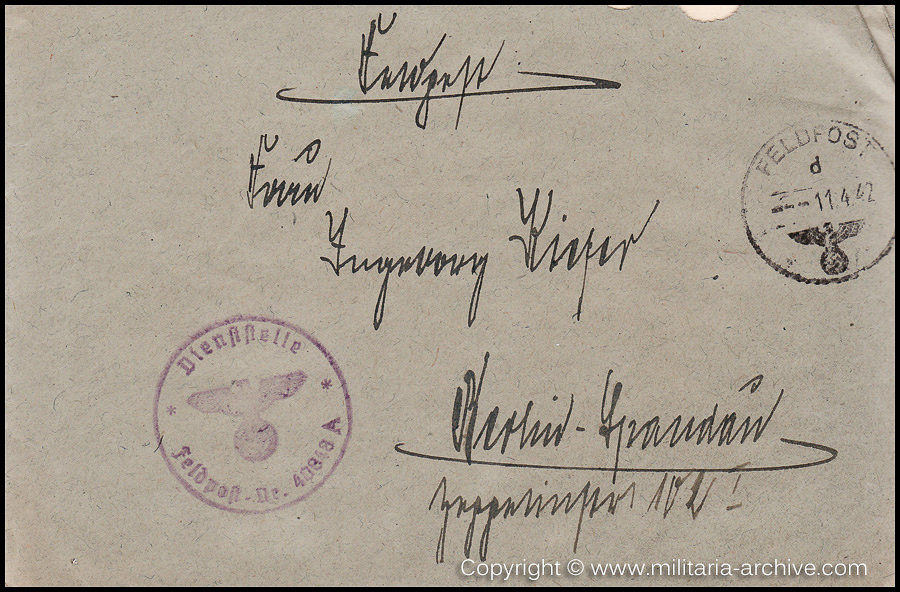 Feldpost
FELDPOST
d
-11.4.42
Frau
Ingeborg
Dienststelle
Feldpost-Nr. A
Berlin-Spandau
Zeppelinstr 102 I
Copyright © www.militaria-archive.com